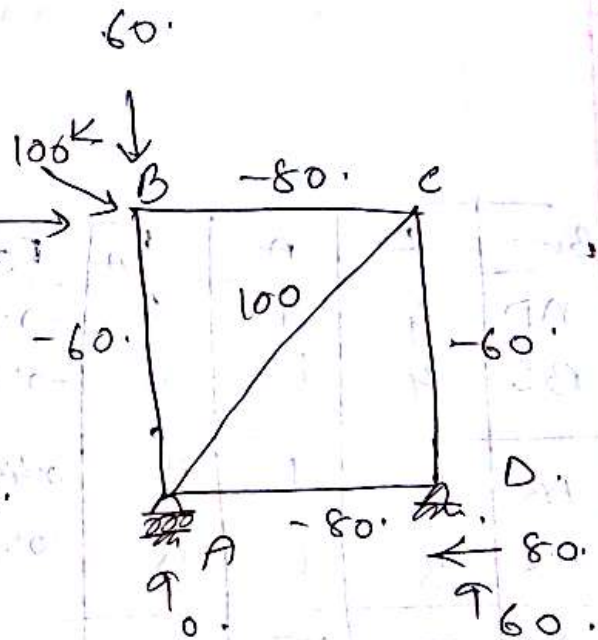 60.
100K
B -80. C
100
-60. -60
D.
-80. ← 80.
A
0. 60.